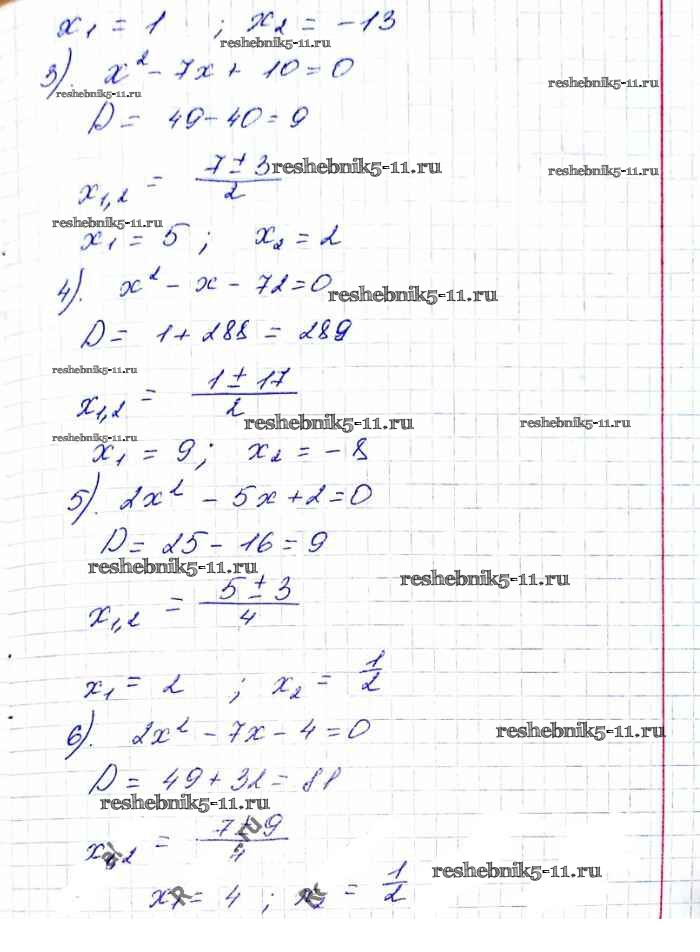 x₁ = 1 ; x₂ = -13
reshebnik5-11.ru
3). x² - 7x + 10 = 0
reshebnik5-11.ru reshebnik5-11.ru
D = 49 - 40 = 9
x₁,₂ = (7 ± 3)/2
reshebnik5-11.ru reshebnik5-11.ru
reshebnik5-11.ru
x₁ = 5 ; x₂ = 2
4). x² - x - 72 = 0
reshebnik5-11.ru
D = 1 + 288 = 289
reshebnik5-11.ru
x₁,₂ = (1 ± 17)/2
reshebnik5-11.ru reshebnik5-11.ru
reshebnik5-11.ru
x₁ = 9 ; x₂ = -8
5). 2x² - 5x + 2 = 0
D = 25 - 16 = 9
reshebnik5-11.ru reshebnik5-11.ru
x₁,₂ = (5 ± 3)/4
x₁ = 2 ; x₂ = 1/2
6). 2x² - 7x - 4 = 0
reshebnik5-11.ru
D = 49 + 32 = 81
reshebnik5-11.ru
x₁,₂ = (7 ± 9)/4
reshebnik5-11.ru
x₁ = 4 ; x₂ = 1/2